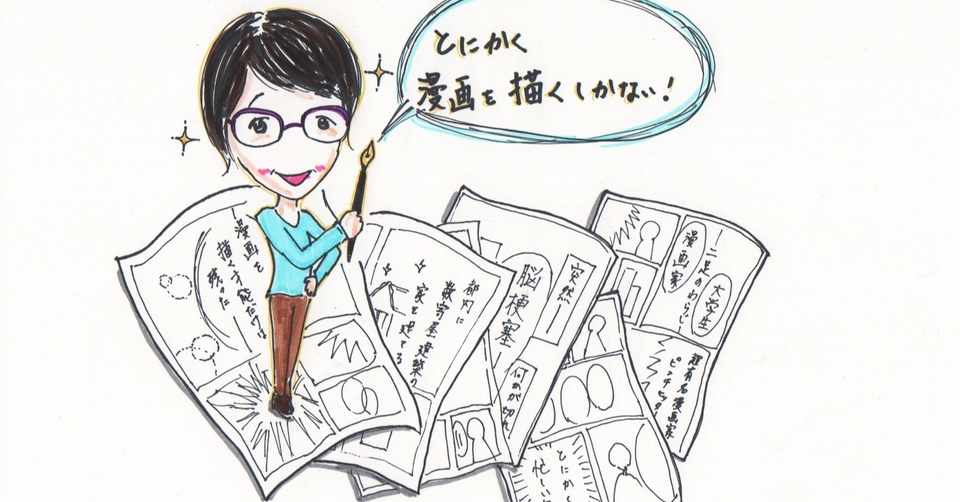 とにかく
漫画を描くしかない!
大学生
二足のわらじ
漫画家
超有名漫画家
ピンチヒッター
突然ー
脳梗塞
何かが切れ
とにかく
忙しい
都内に
数寄屋建築の
家を建てる
漫画を
描く才能だけは
残った